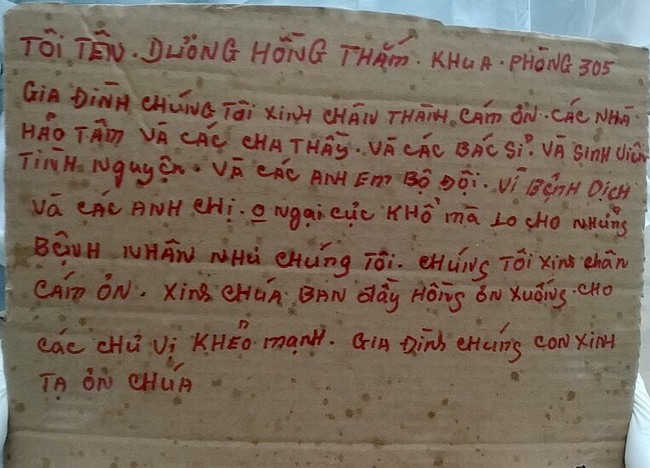 TÔI TÊN. DƯƠNG HỒNG THẮM. KHU A. PHÒNG 305
GIA ĐÌNH CHÚNG TÔI XINH CHÂN THÀNH CÁM ƠN. CÁC NHÀ
HẢO TÂM VÀ CÁC CHA THẦY. VÀ CÁC BÁC SỈ. VÀ SINH VIÊN
TÌNH NGUYỆN. VÀ CÁC ANH EM BỘ ĐỘI. VÌ BỆNH DỊCH
VÀ CÁC ANH CHỊ. O NGẠI CỰC KHỔ MÀ LO CHO NHỮNG
BỆNH NHÂN NHƯ CHÚNG TÔI. CHÚNG TÔI XINH CHÂN
CÁM ƠN. XINH CHÚA BAN ĐẦY HỒNG ƠN XUỐNG. CHO
CÁC CHƯ VỊ KHẺO MẠNH. GIA ĐÌNH CHÚNG CON XINH
TẠ ƠN CHÚA